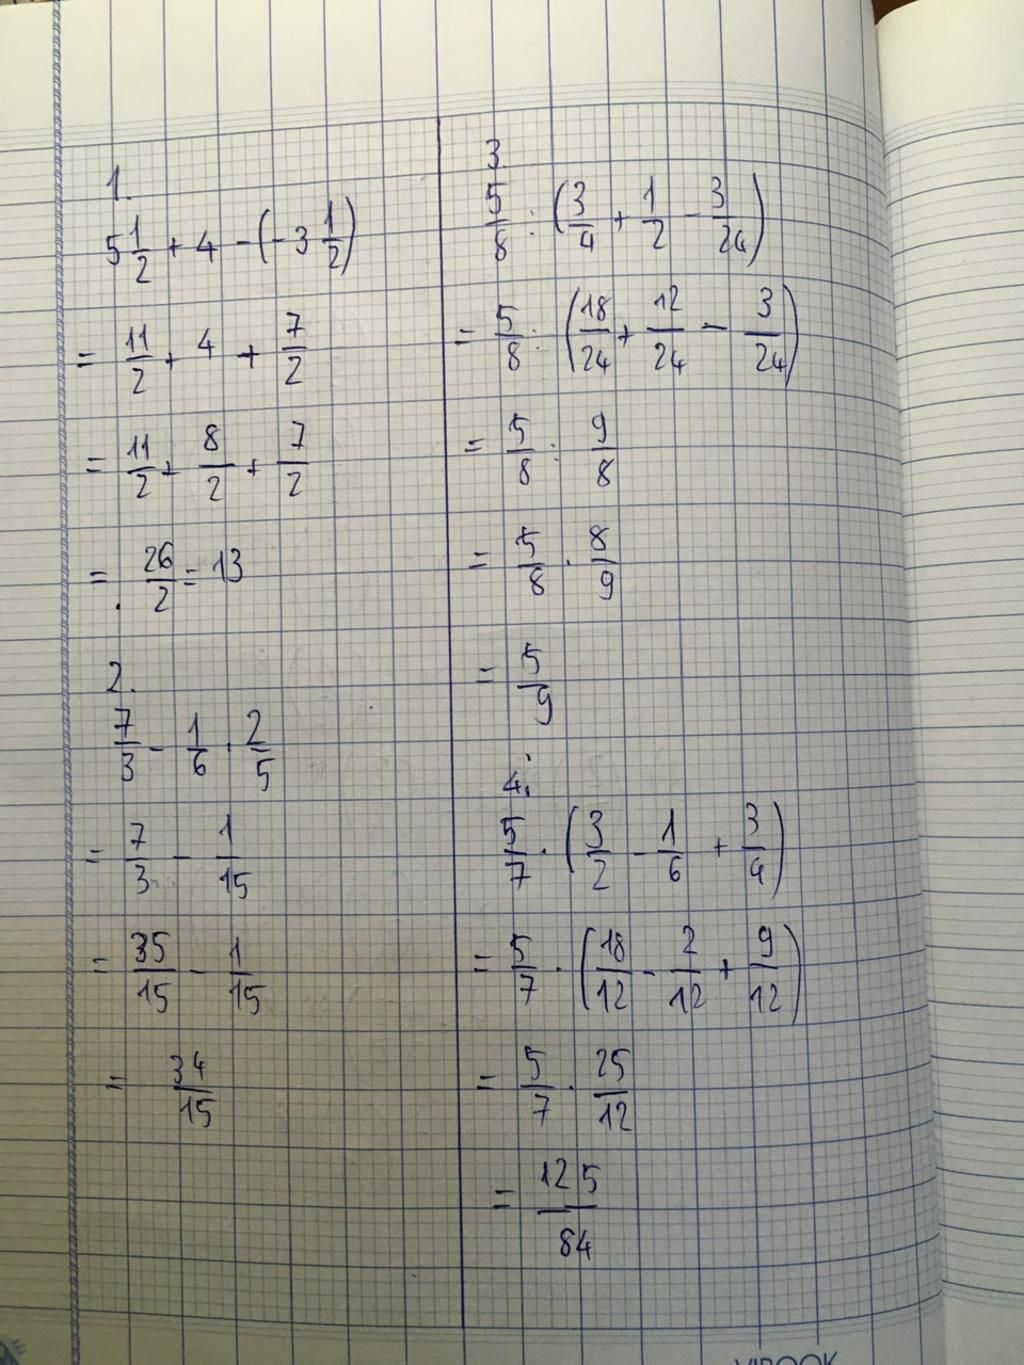 1.
5 1/2 + 4 - (-3 1/2)
= 11/2 + 4 + 7/2
= 11/2 + 8/2 + 7/2
= 26/2 = 13
2.
7/3 - 1/6 . 2/5
= 7/3 - 1/15
= 35/15 - 1/15
= 34/15
3.
5/8 : (3/4 + 1/2 - 3/24)
= 5/8 : (18/24 + 12/24 - 3/24)
= 5/8 : 9/8
= 5/8 . 8/9
= 5/9
4.
5/7 . (3/2 - 1/6 + 3/4)
= 5/7 . (18/12 - 2/12 + 9/12)
= 5/7 . 25/12
= 125/84